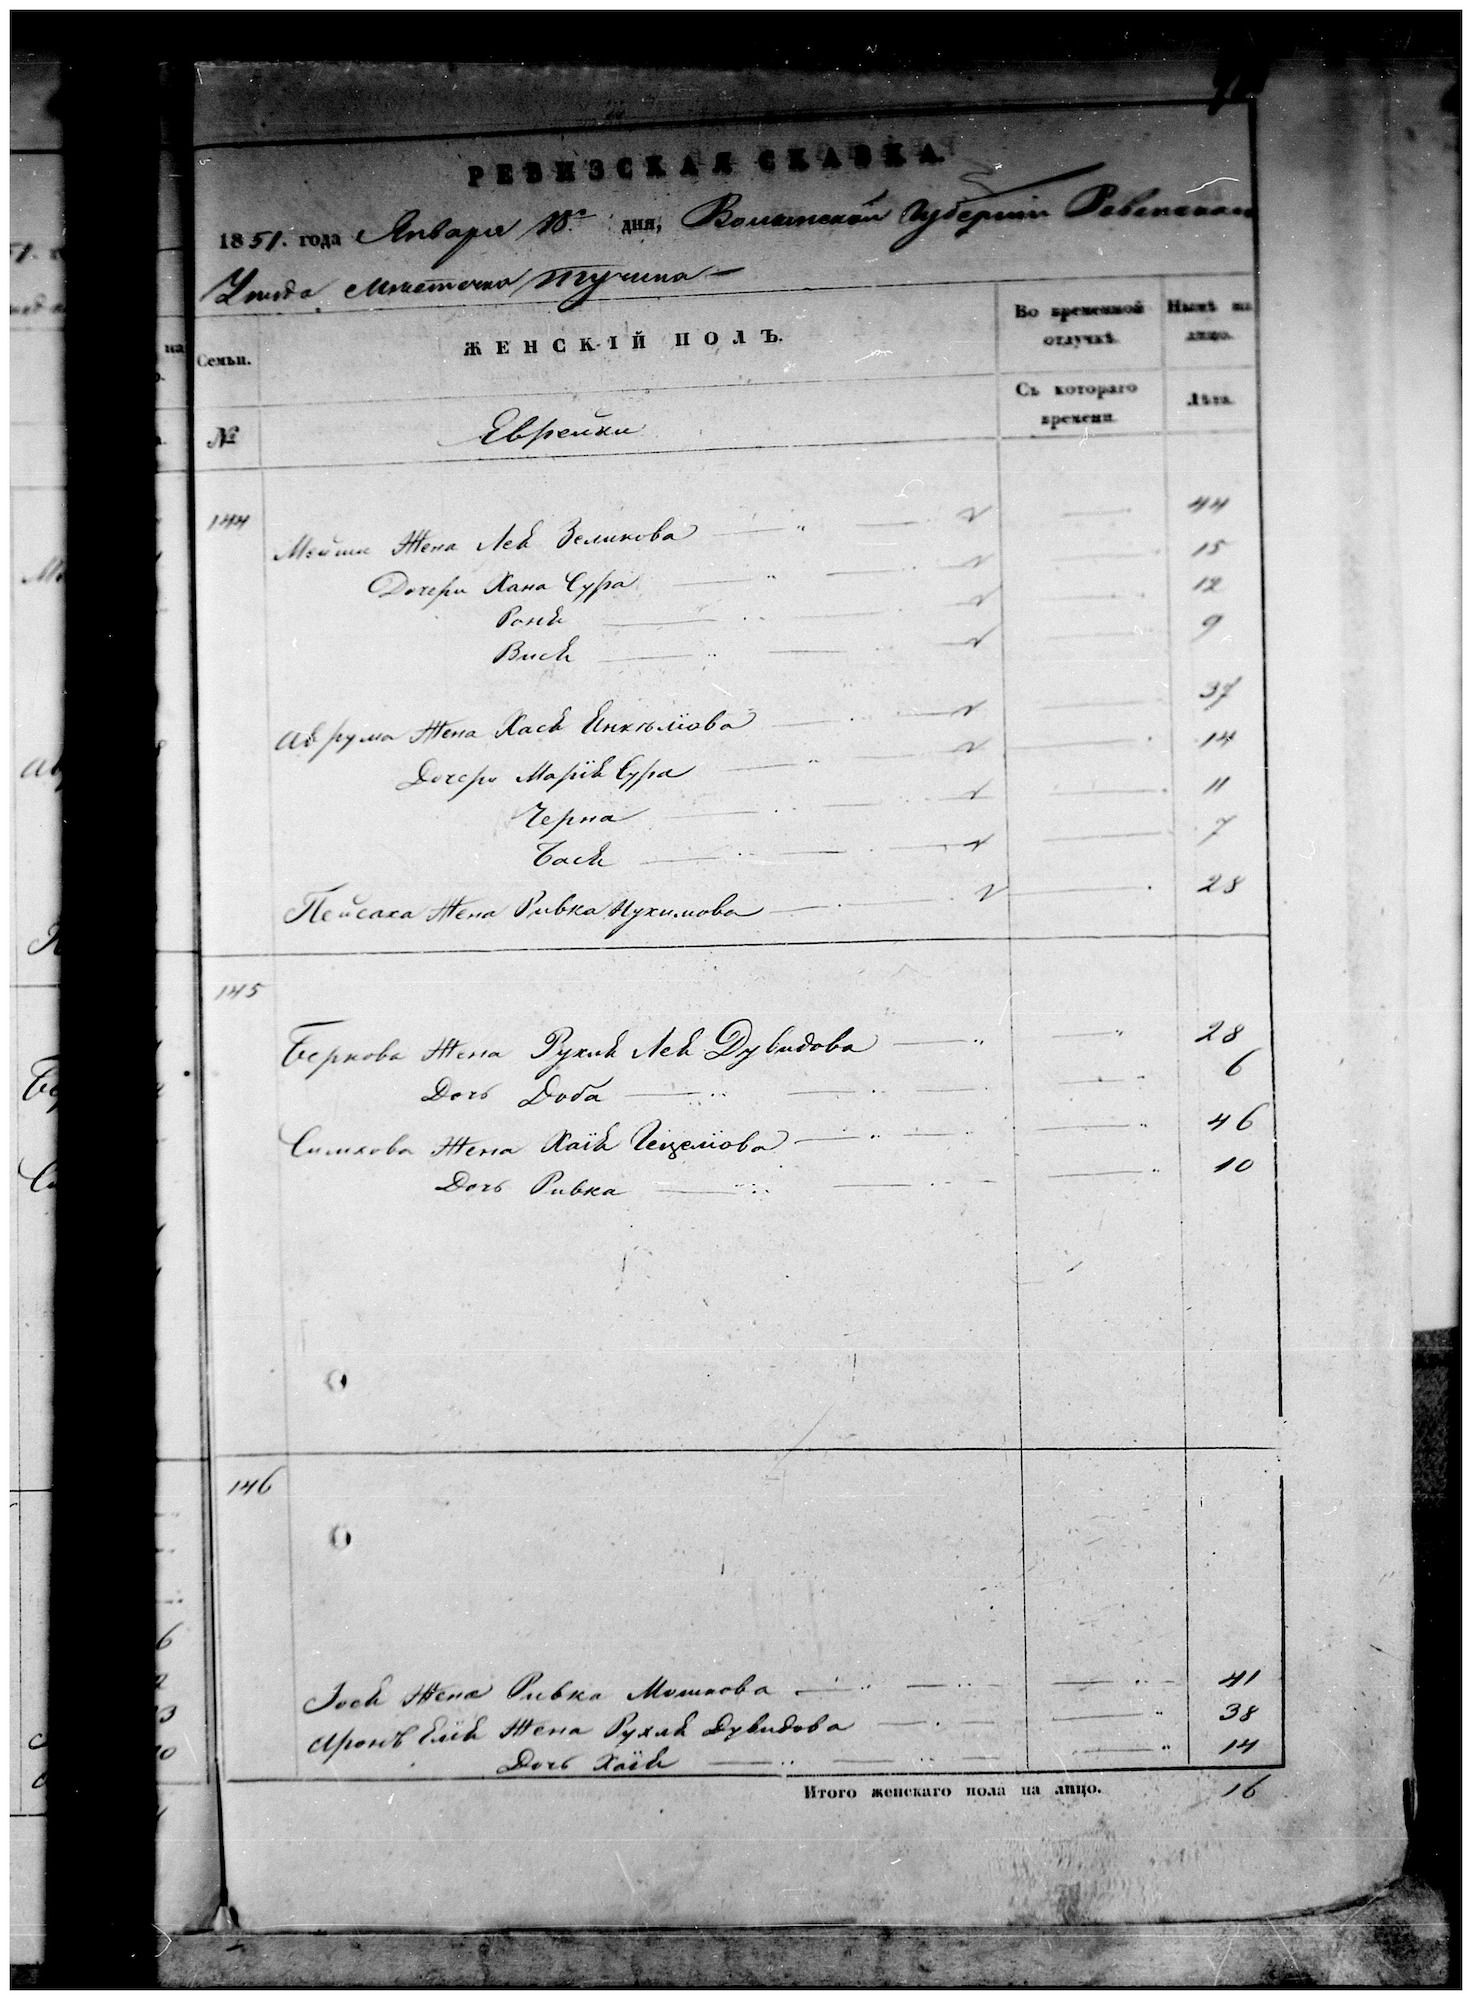 РЕВИЗСКАЯ СКАЗКА.
1851. года Января 18го дня, Волынской Губернии Ровенскаго
Уезда Местечка Тучина
Семьи. ЖЕНСКІЙ ПОЛЪ. Во временной отлучкѣ. Нынѣ на лицо.
№ Еврейки Съ котораго времени. Лѣта.
144
Мейши Жена Лея Зеликова 44
Дочери Хана Сура 15
Роня 12
Вися 9
Аврума Жена Хася Инкелiова 37
Дочери Марiя Сура 14
Черна 11
Бася 7
Пейсаха Жена Ривка Нухимова 28
145
Беркова Жена Рухля Лея Дувидова 28
Дочь Доба 6
Симхова Жена Хаiя Гецелiова 46
Дочь Ривка 10
146
Iося Жена Ривка Мошкова 41
Аронъ Елiя Жена Рухля Дувидова 38
Дочь Хаiя 14
Итого женскаго пола на лицо. 16